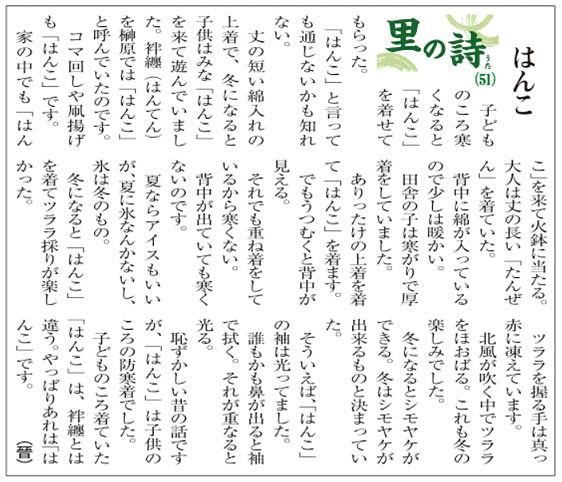 はんこ
里の詩
うた
(51)
子ども
のころ寒
くなると
「はんこ」
を着せて
もらった。
「はんこ」と言って
も通じないかも知れ
ない。
丈の短い綿入れの
上着で、冬になると
子供はみな「はんこ」
を来て遊んでいまし
た。袢纏（はんてん）
を榊原では「はんこ」
と呼んでいたのです。
コマ回しや凧揚げ
も「はんこ」です。
家の中でも「はん
こ」を来て火鉢に当たる。
大人は丈の長い「たんぜ
ん」を着ていた。
背中に綿が入っている
ので少しは暖かい。
田舎の子は寒がりで厚
着をしていました。
ありったけの上着を着
て「はんこ」を着ます。
でもうつむくと背中が
見える。
それでも重ね着をして
いるから寒くない。
背中が出ていても寒く
ないのです。
夏ならアイスもいい
が、夏に氷なんかないし、
氷は冬のもの。
冬になると「はんこ」
を着てツララ採りが楽し
かった。
ツララを握る手は真っ
赤に凍えています。
北風が吹く中でツララ
をほおばる。これも冬の
楽しみでした。
冬になるとシモヤケが
できる。冬はシモヤケが
出来るものと決まってい
た。
そういえば、「はんこ」
の袖は光ってました。
誰もかも鼻が出ると袖
で拭く。それが重なると
光る。
恥ずかしい昔の話です
が、「はんこ」は子供の
ころの防寒着でした。
子どものころ着ていた
「はんこ」は、袢纏とは
違う。やっぱりあれは「は
んこ」です。
（晉）